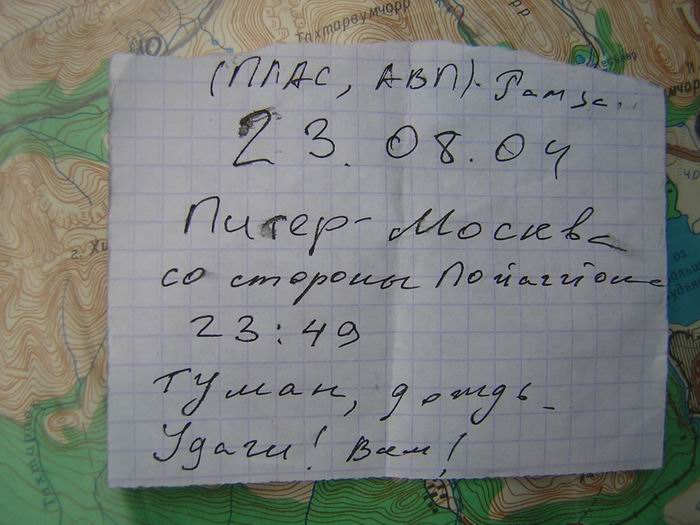 Тахтарвумчорр
(ПЛАС, АВП). Рамза..
23.08.04
Питер-Москва
со стороны Пойаггйока
23:49
туман, дождь
Удачи! Вам!
Тахтарв
оз.